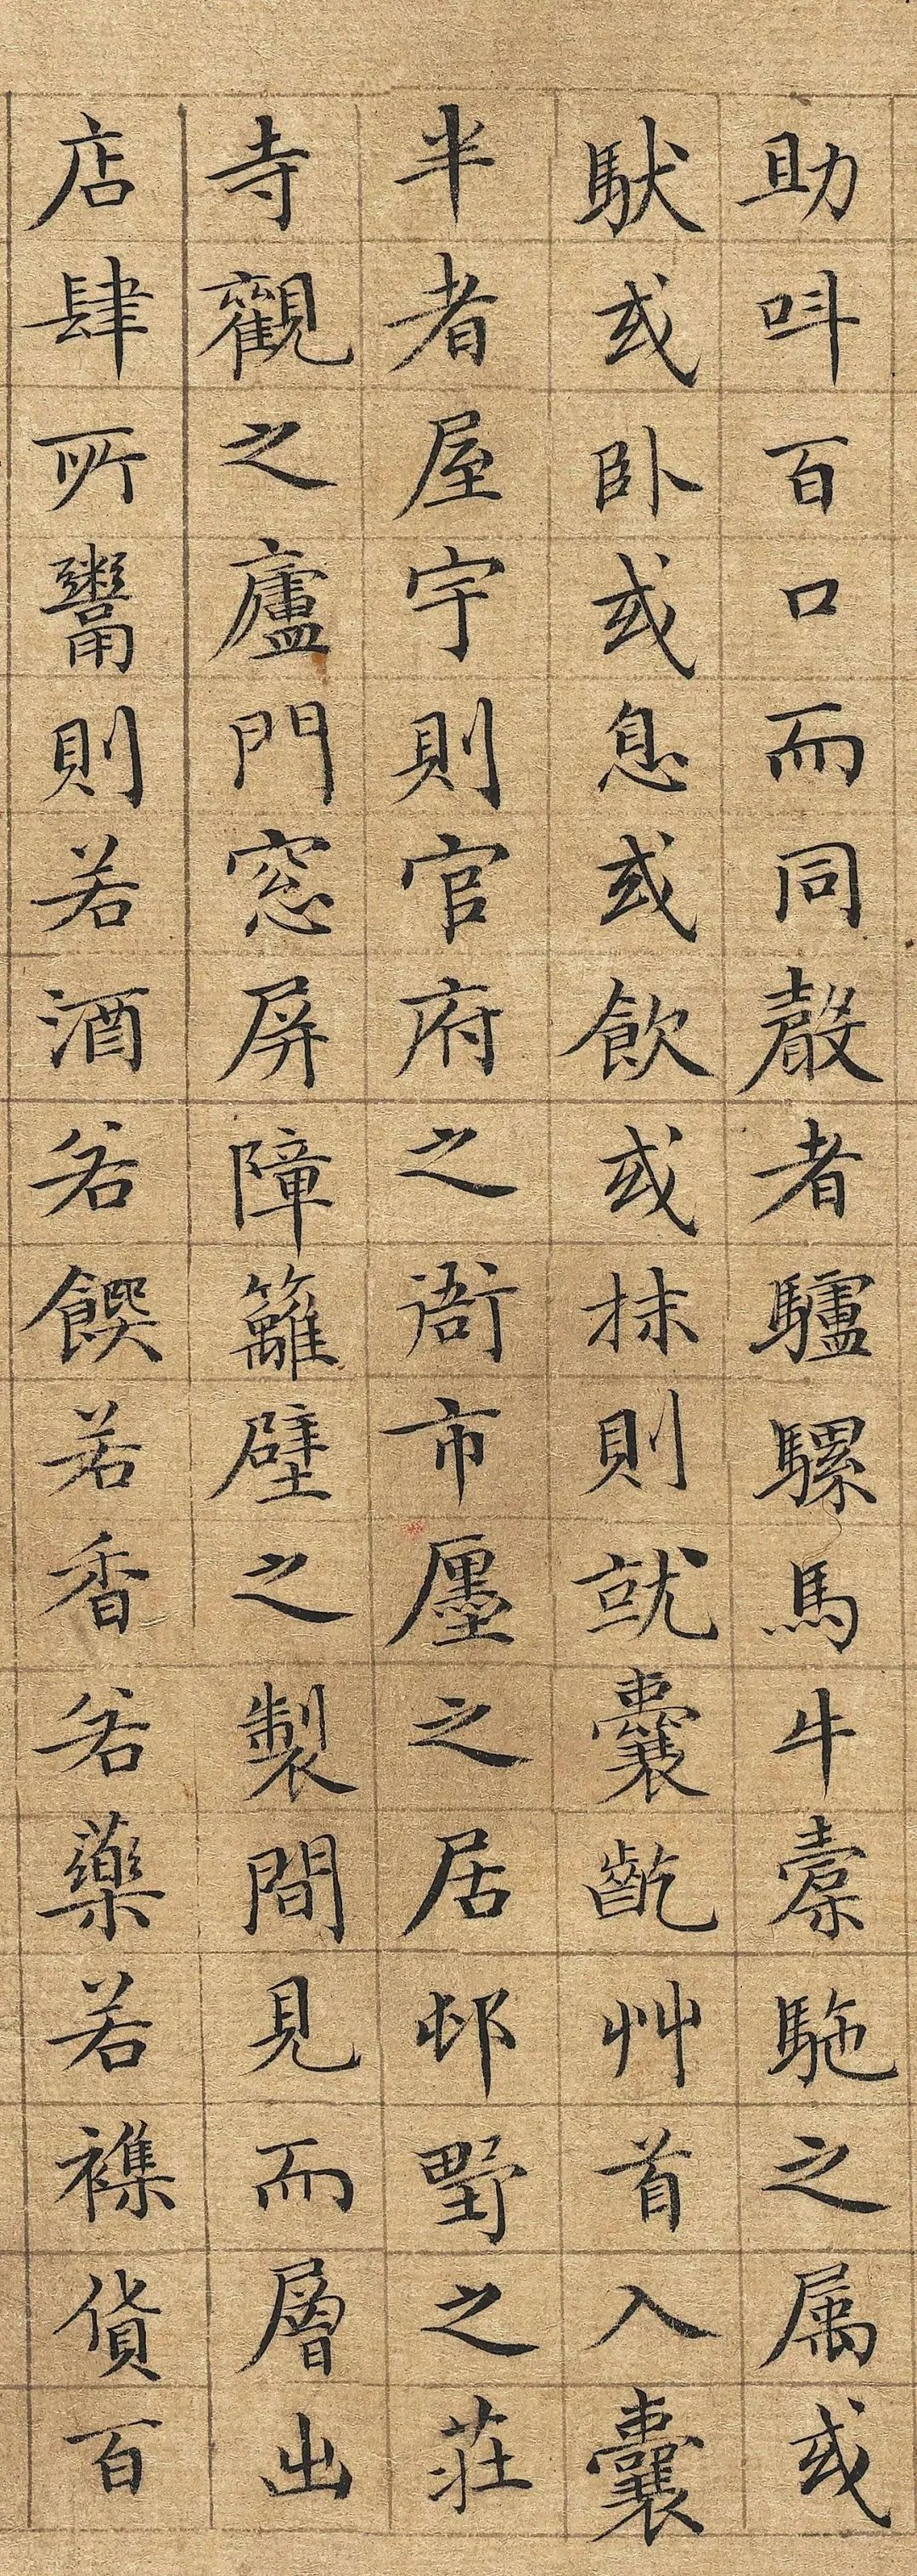 助呌百口而同聲者驢騾馬牛橐駞之属或
馱或卧或息或飲或抹則就囊齕艸首入囊
半者屋宇則官府之衙市廛之居邨野之莊
寺觀之廬門窓屏障籬壁之製間見而層出
店肆所鬻則若酒若饌若香若藥若襍貨百